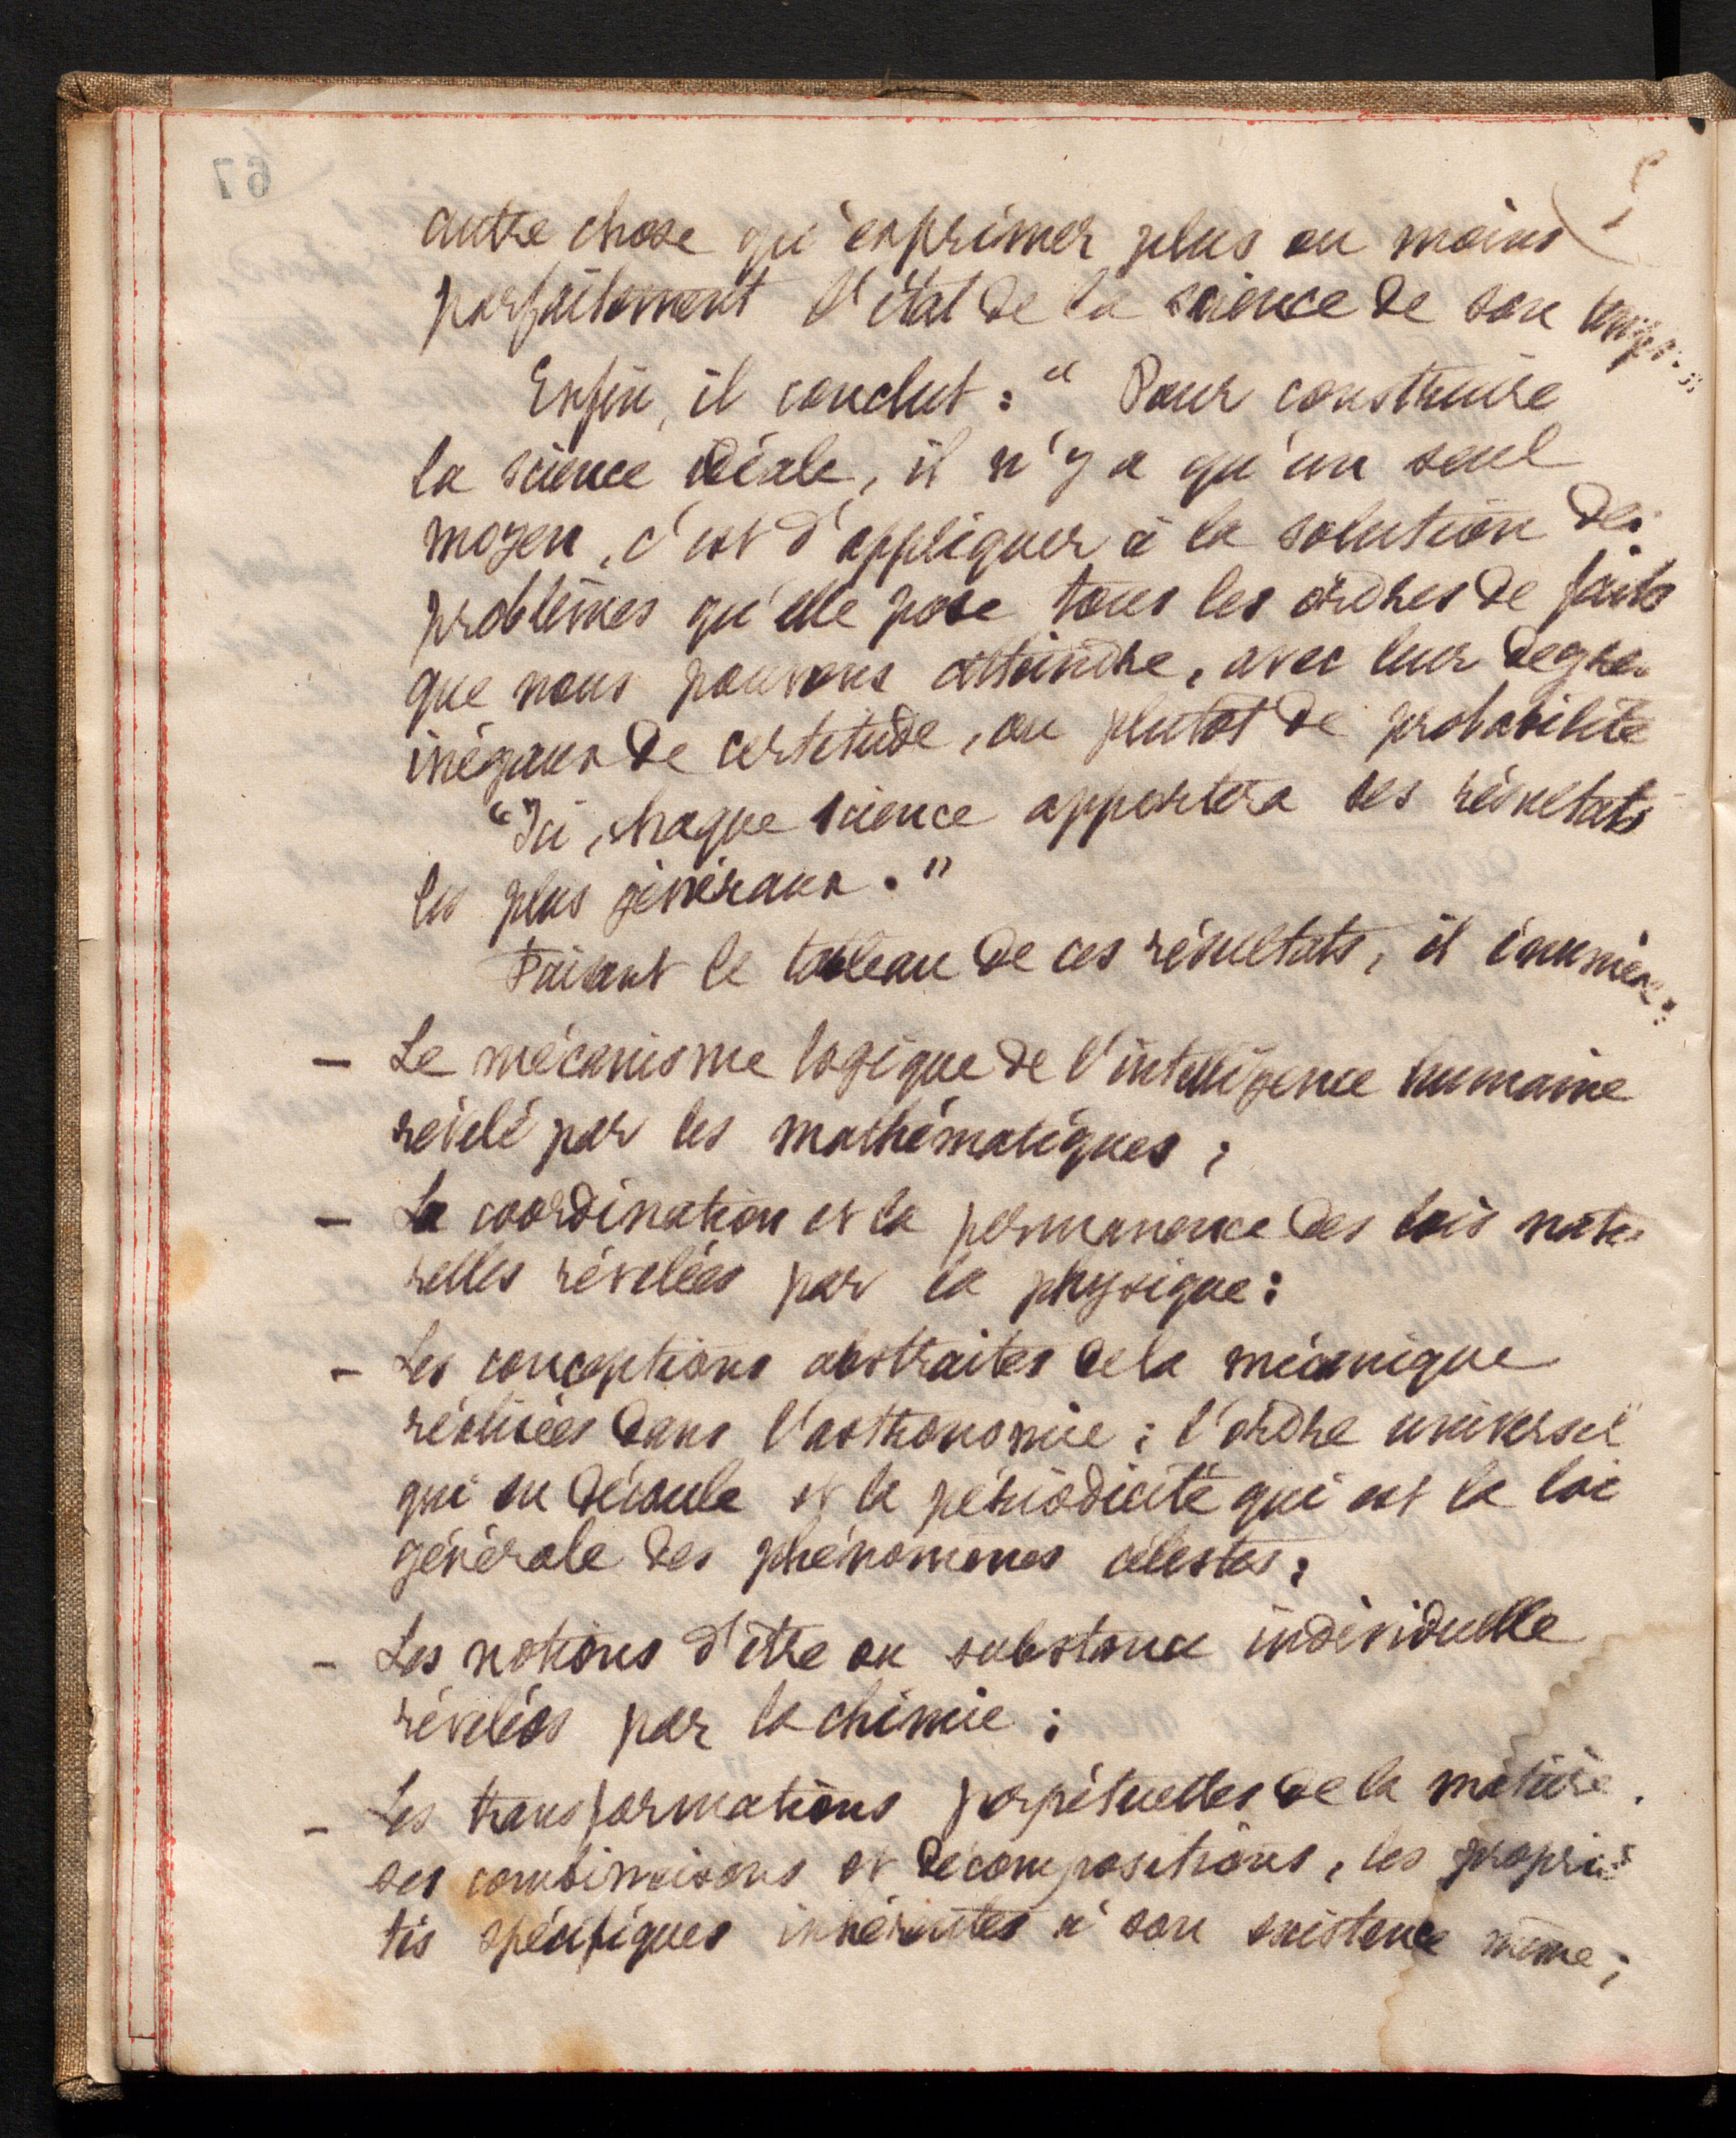 autre chose qu'exprimer plus ou moins
parfaitement l'état de la science de son temps."
Enfin, il conclut : " Pour construire
la science idéale, il n'y a qu'un seul
moyen, c'est d'appliquer à la solution des
problèmes qu'elle pose tous les ordres de faits
que nous pouvons atteindre, avec leur degrés
inégaux de certitude, ou plutôt de probabilité
"Ici, chaque science apportera ses résultats
les plus généraux."
Faisant le tableau de ces résultats, il énumère :
— Le mécanisme logique de l'intelligence humaine
révélé par les mathématiques ;
— La coordination et la permanence des lois natu-
relles révélées par la physique ;
— Les conceptions abstraites de la mécanique
réalisées dans l'astronomie ; l'ordre universel
qui en découle et la périodicité qui est la loi
générale des phénomènes célestes ;
— Les notions d'être ou substance individuelle
révélées par la chimie ;
— Les transformations perpétuelles de la matière,
ses combinaisons et décompositions, les proprié-
tés spécifiques inhérentes à son existence même ;